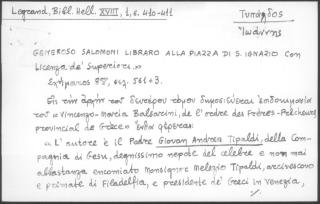 Legrand, Bibl. Hell. XVIII, 1, σ. 410-411
Τυπάλδος
Ἰωάννης
GENEROSO SALOMONI LIBRARO ALLA PIAZZA DI S. IGNAZIO Con
Licenza de' Superiori.»
Σχήματος 8ον, σελ. 561+3.
Εἰς τὴν ἀρχὴν τοῦ δευτέρου τόμου δημοσιεύεται
τοῦ «Vincenzo-Maria Balsarini, de l'ordre des Frères-Prêcheurs,
provincial de Grèce»
«L'autore è il Padre Giovan Andrea Tipaldi, della Com-
pagnia di Gesu, degnissimo nepote del celebre e non mai
abbastanza encomiato Monsignor Melezio Tipaldi, arcivescovo
e primate di Filadelfia, e presidente de' Greci in Venezia,